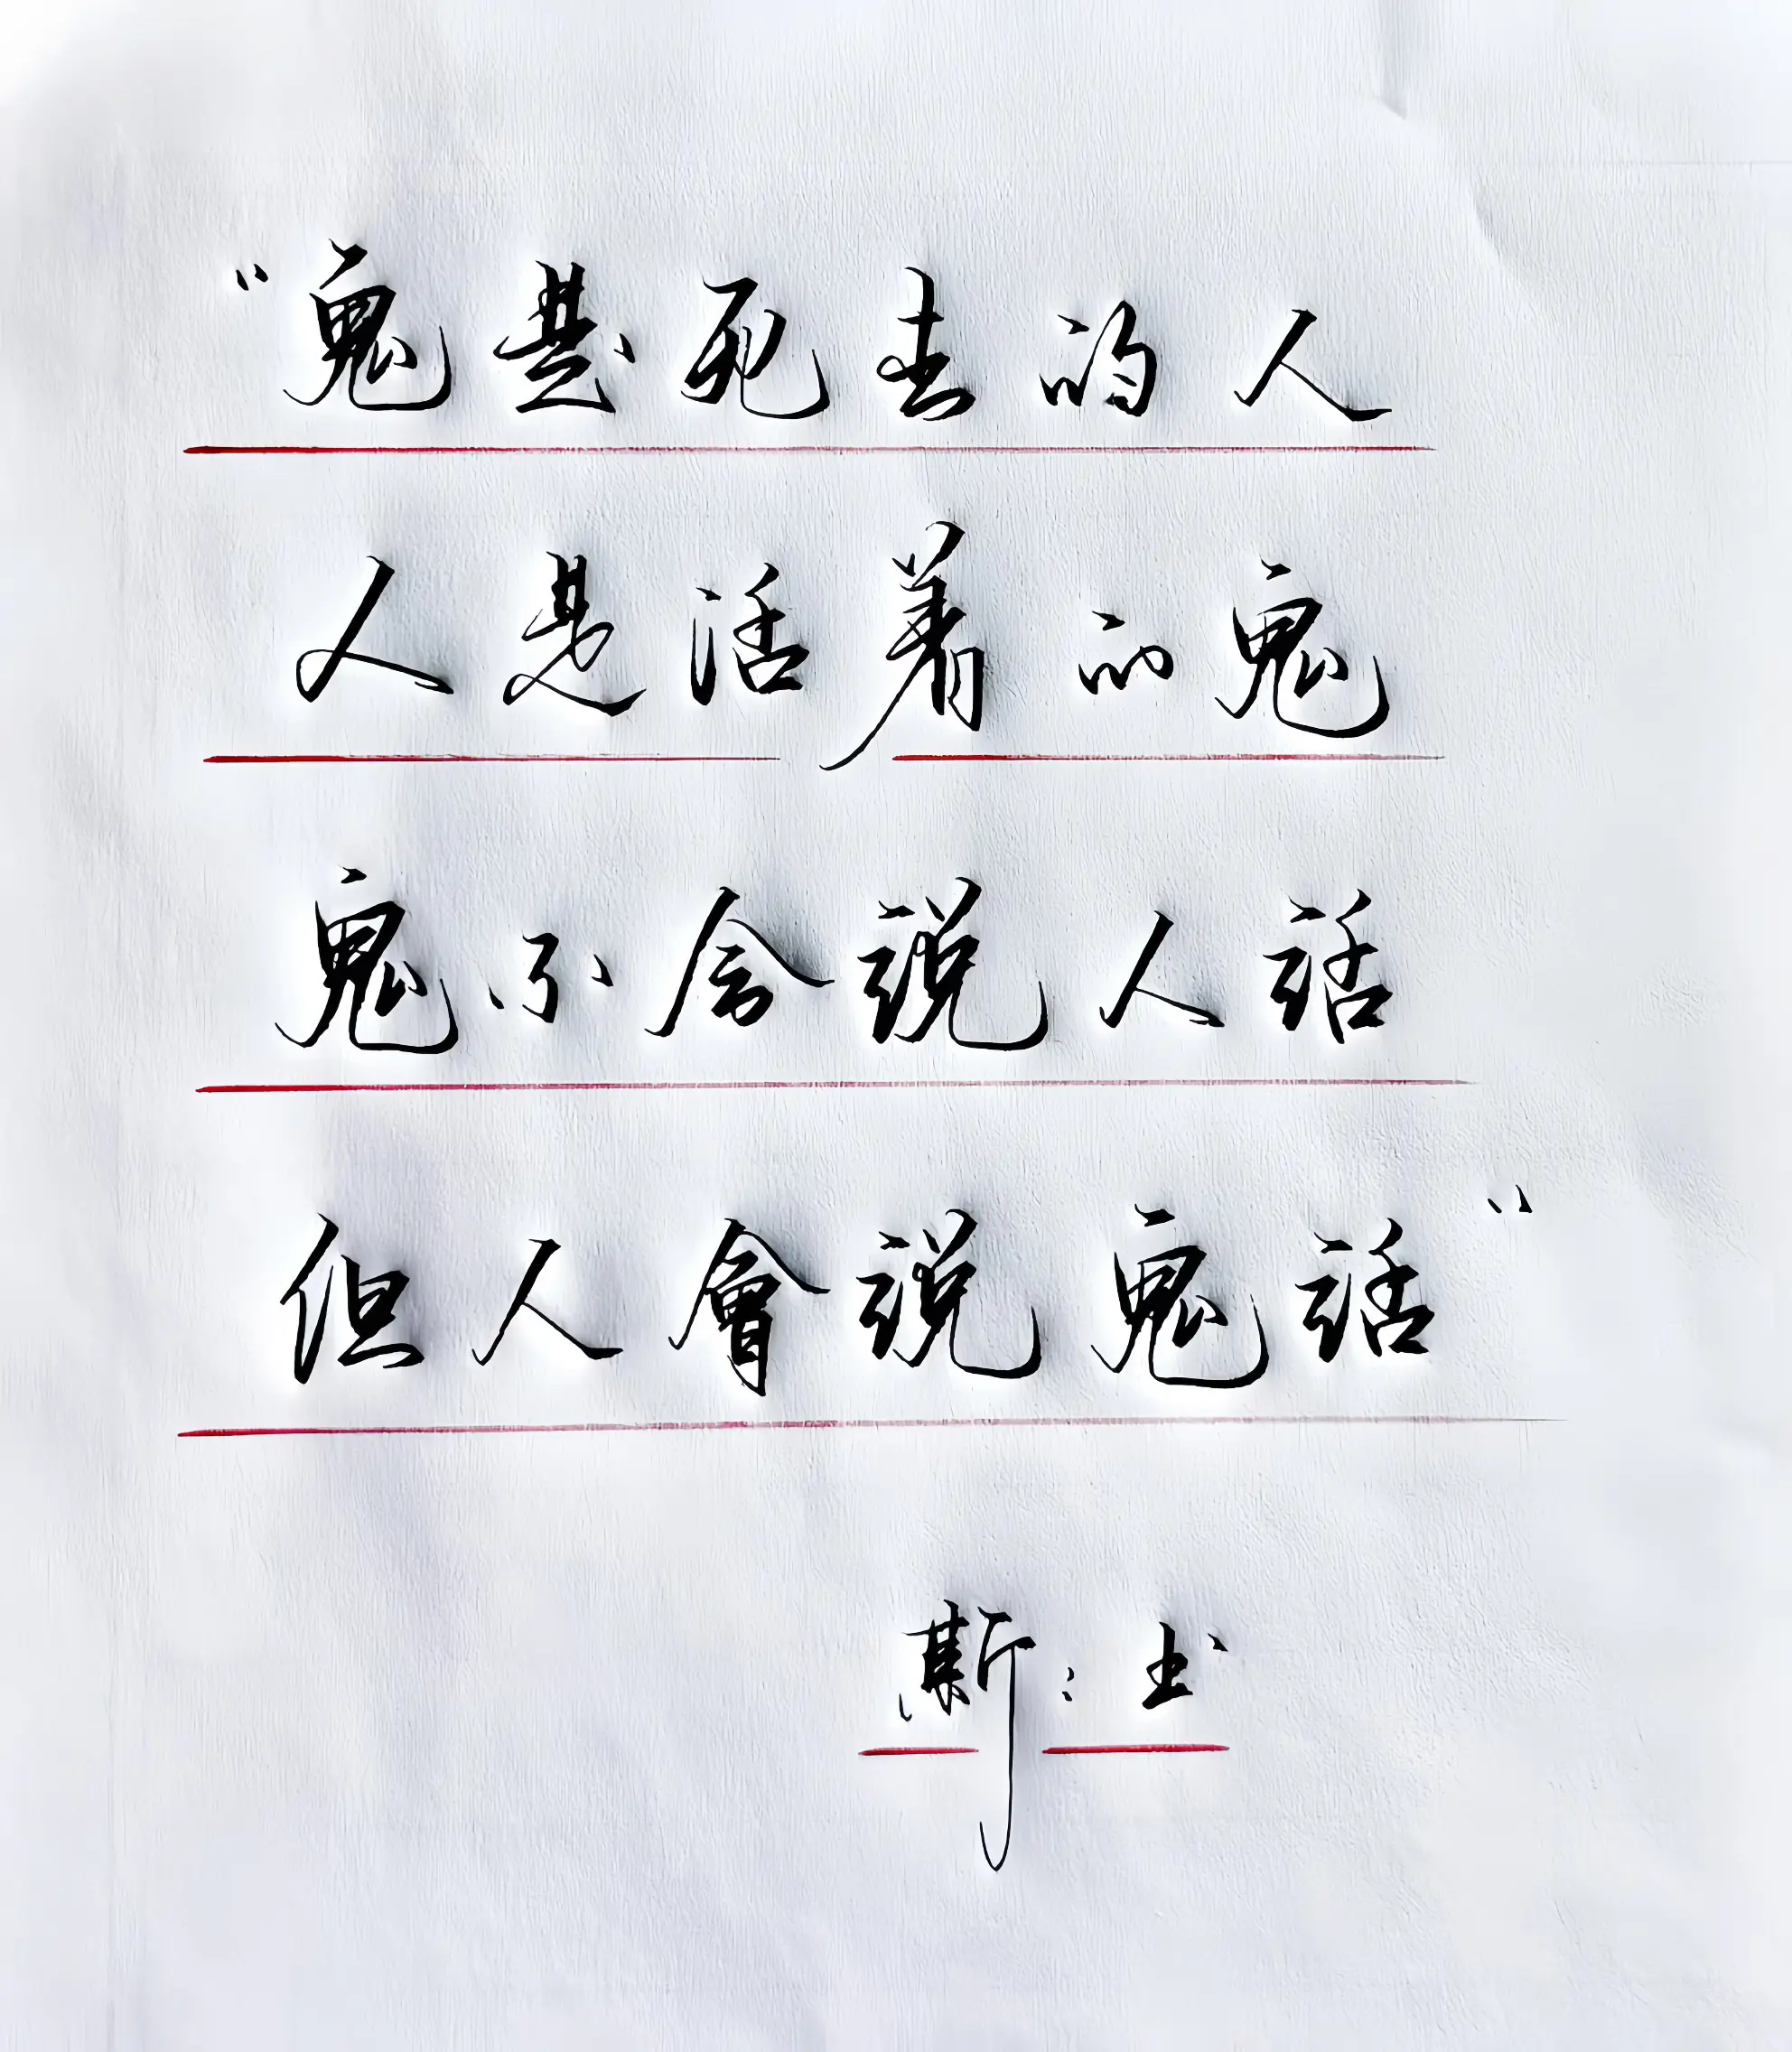 “鬼是死去的人
人是活着的鬼
鬼不会说人话
但人會说鬼话”
斯：书